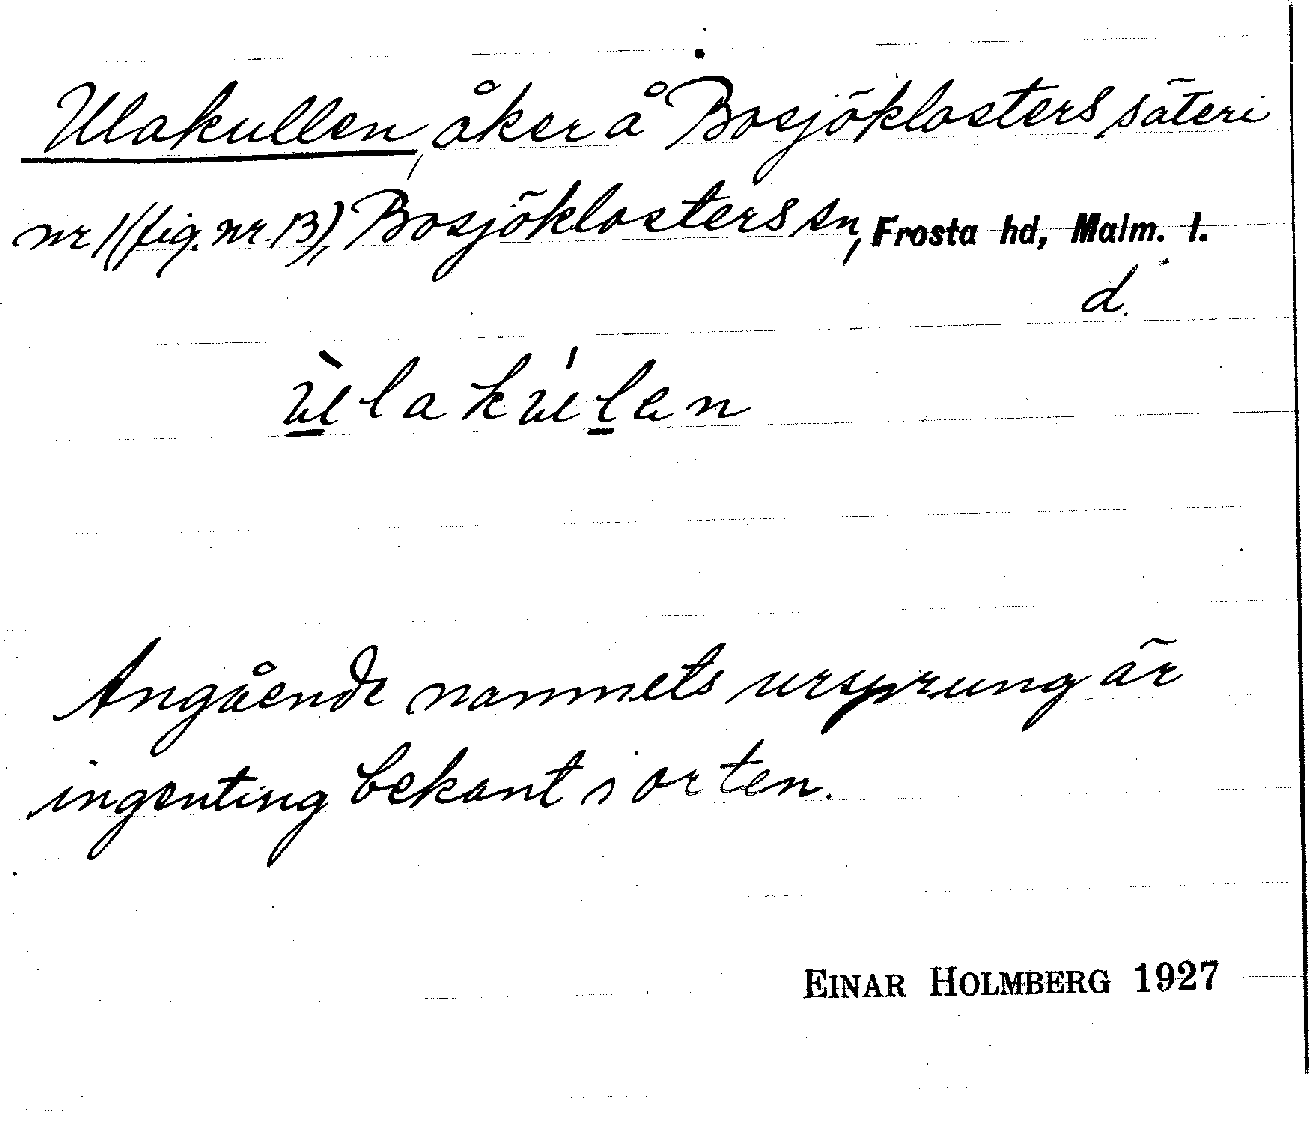 Ulakullen, åker å Bosjöklosters säteri
nr 1 (fig. nr 13), Bosjöklosters sn, Frosta hd, Malm. l.
d.
ùlakúlen
Angående namnets ursprung är
ingenting bekant i orten.
EINAR HOLMBERG 1927